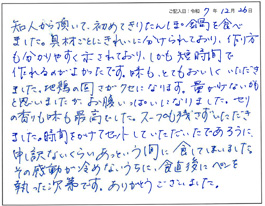 ご記入日：令和 7 年 12月 26日
知人から頂いて、初めてきりたんぽ鍋を食べ
ました。具材ごとにきれいに分けられており、作り方
も分かりやすく示されており、しかも短時間で
作れるのがよかったです。味も、とてもおいしくいただき
ました。地鶏の回さがクセになります。量が少ないかも
と思いましたが、お腹いっぱいになりました。セリ
の香りも味も最高でした。スープも残さずいただき
ました。時間をかけてセットしていただいたであろうに、
申し訳ないくらいあっという間に食してしまいました。
その感動が冷めないうちに、食直後にペンを
執った次第です。ありがとうございました。